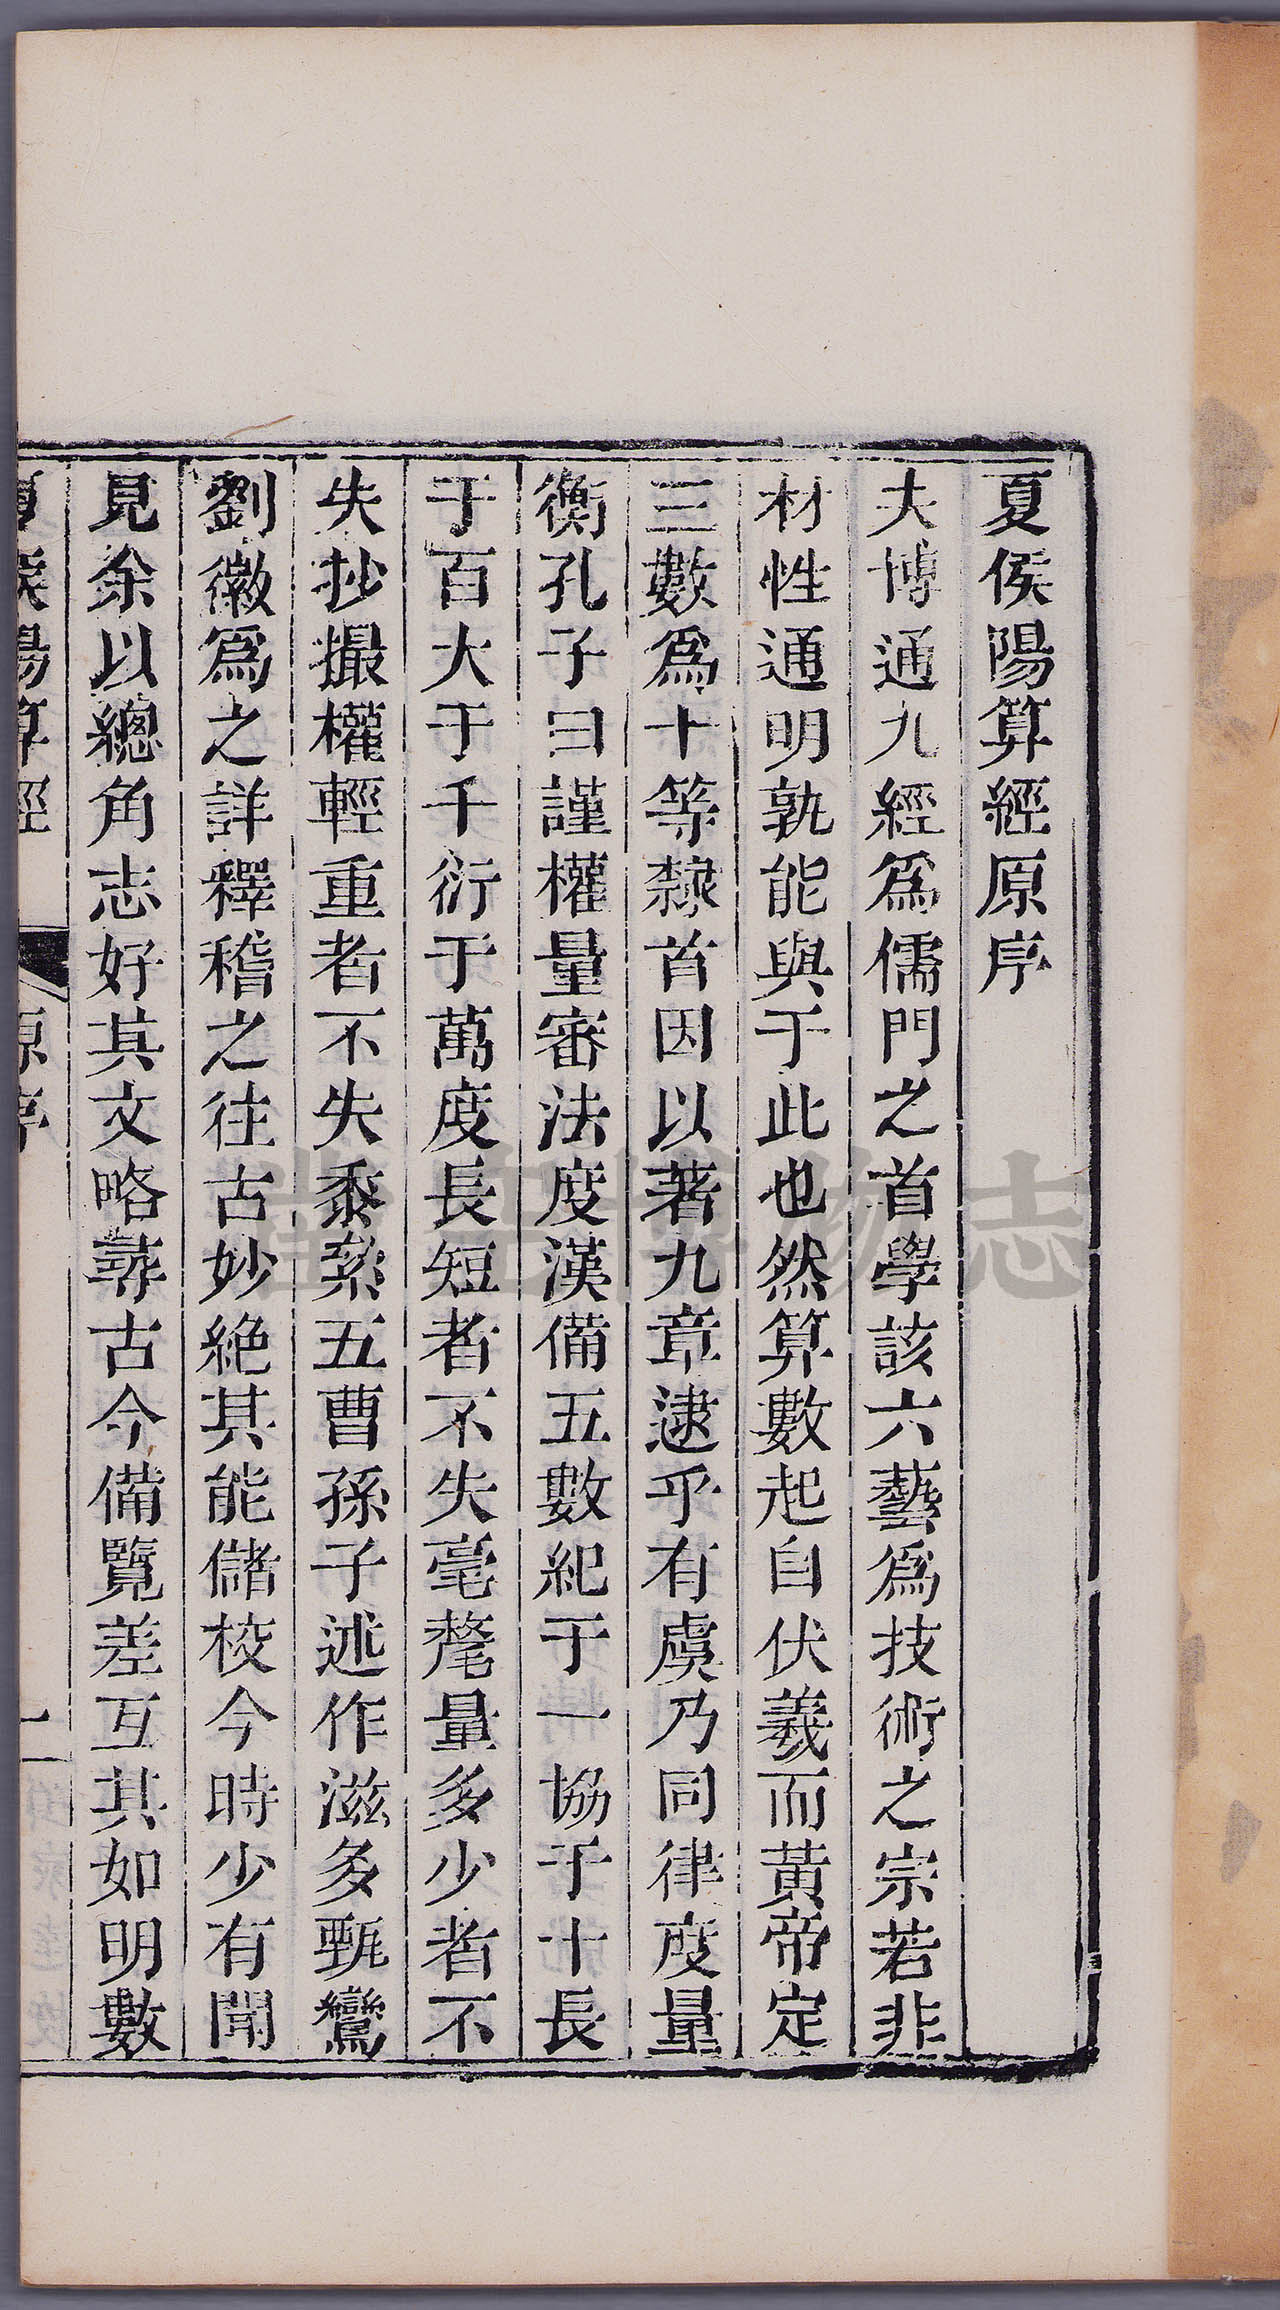 夏侯陽算經原序
夫博通九經爲儒門之首學該六藝爲技術之宗若非
材性通明孰能與于此也然算數起自伏羲而黃帝定
三數爲十等隸首因以著九章逮乎有虞乃同律度量
衡孔子曰謹權量審法度漢備五數紀于一協于十長
于百大于千衍于萬度長短者不失毫氂量多少者不
失抄撮權輕重者不失黍絫五曹孫子述作滋多甄鸞
劉徽爲之詳釋稽之往古妙絶其能儲校今時少有聞
見余以總角志好其文略尋古今備覽差互其如明數
夏侯陽算經 原序 一